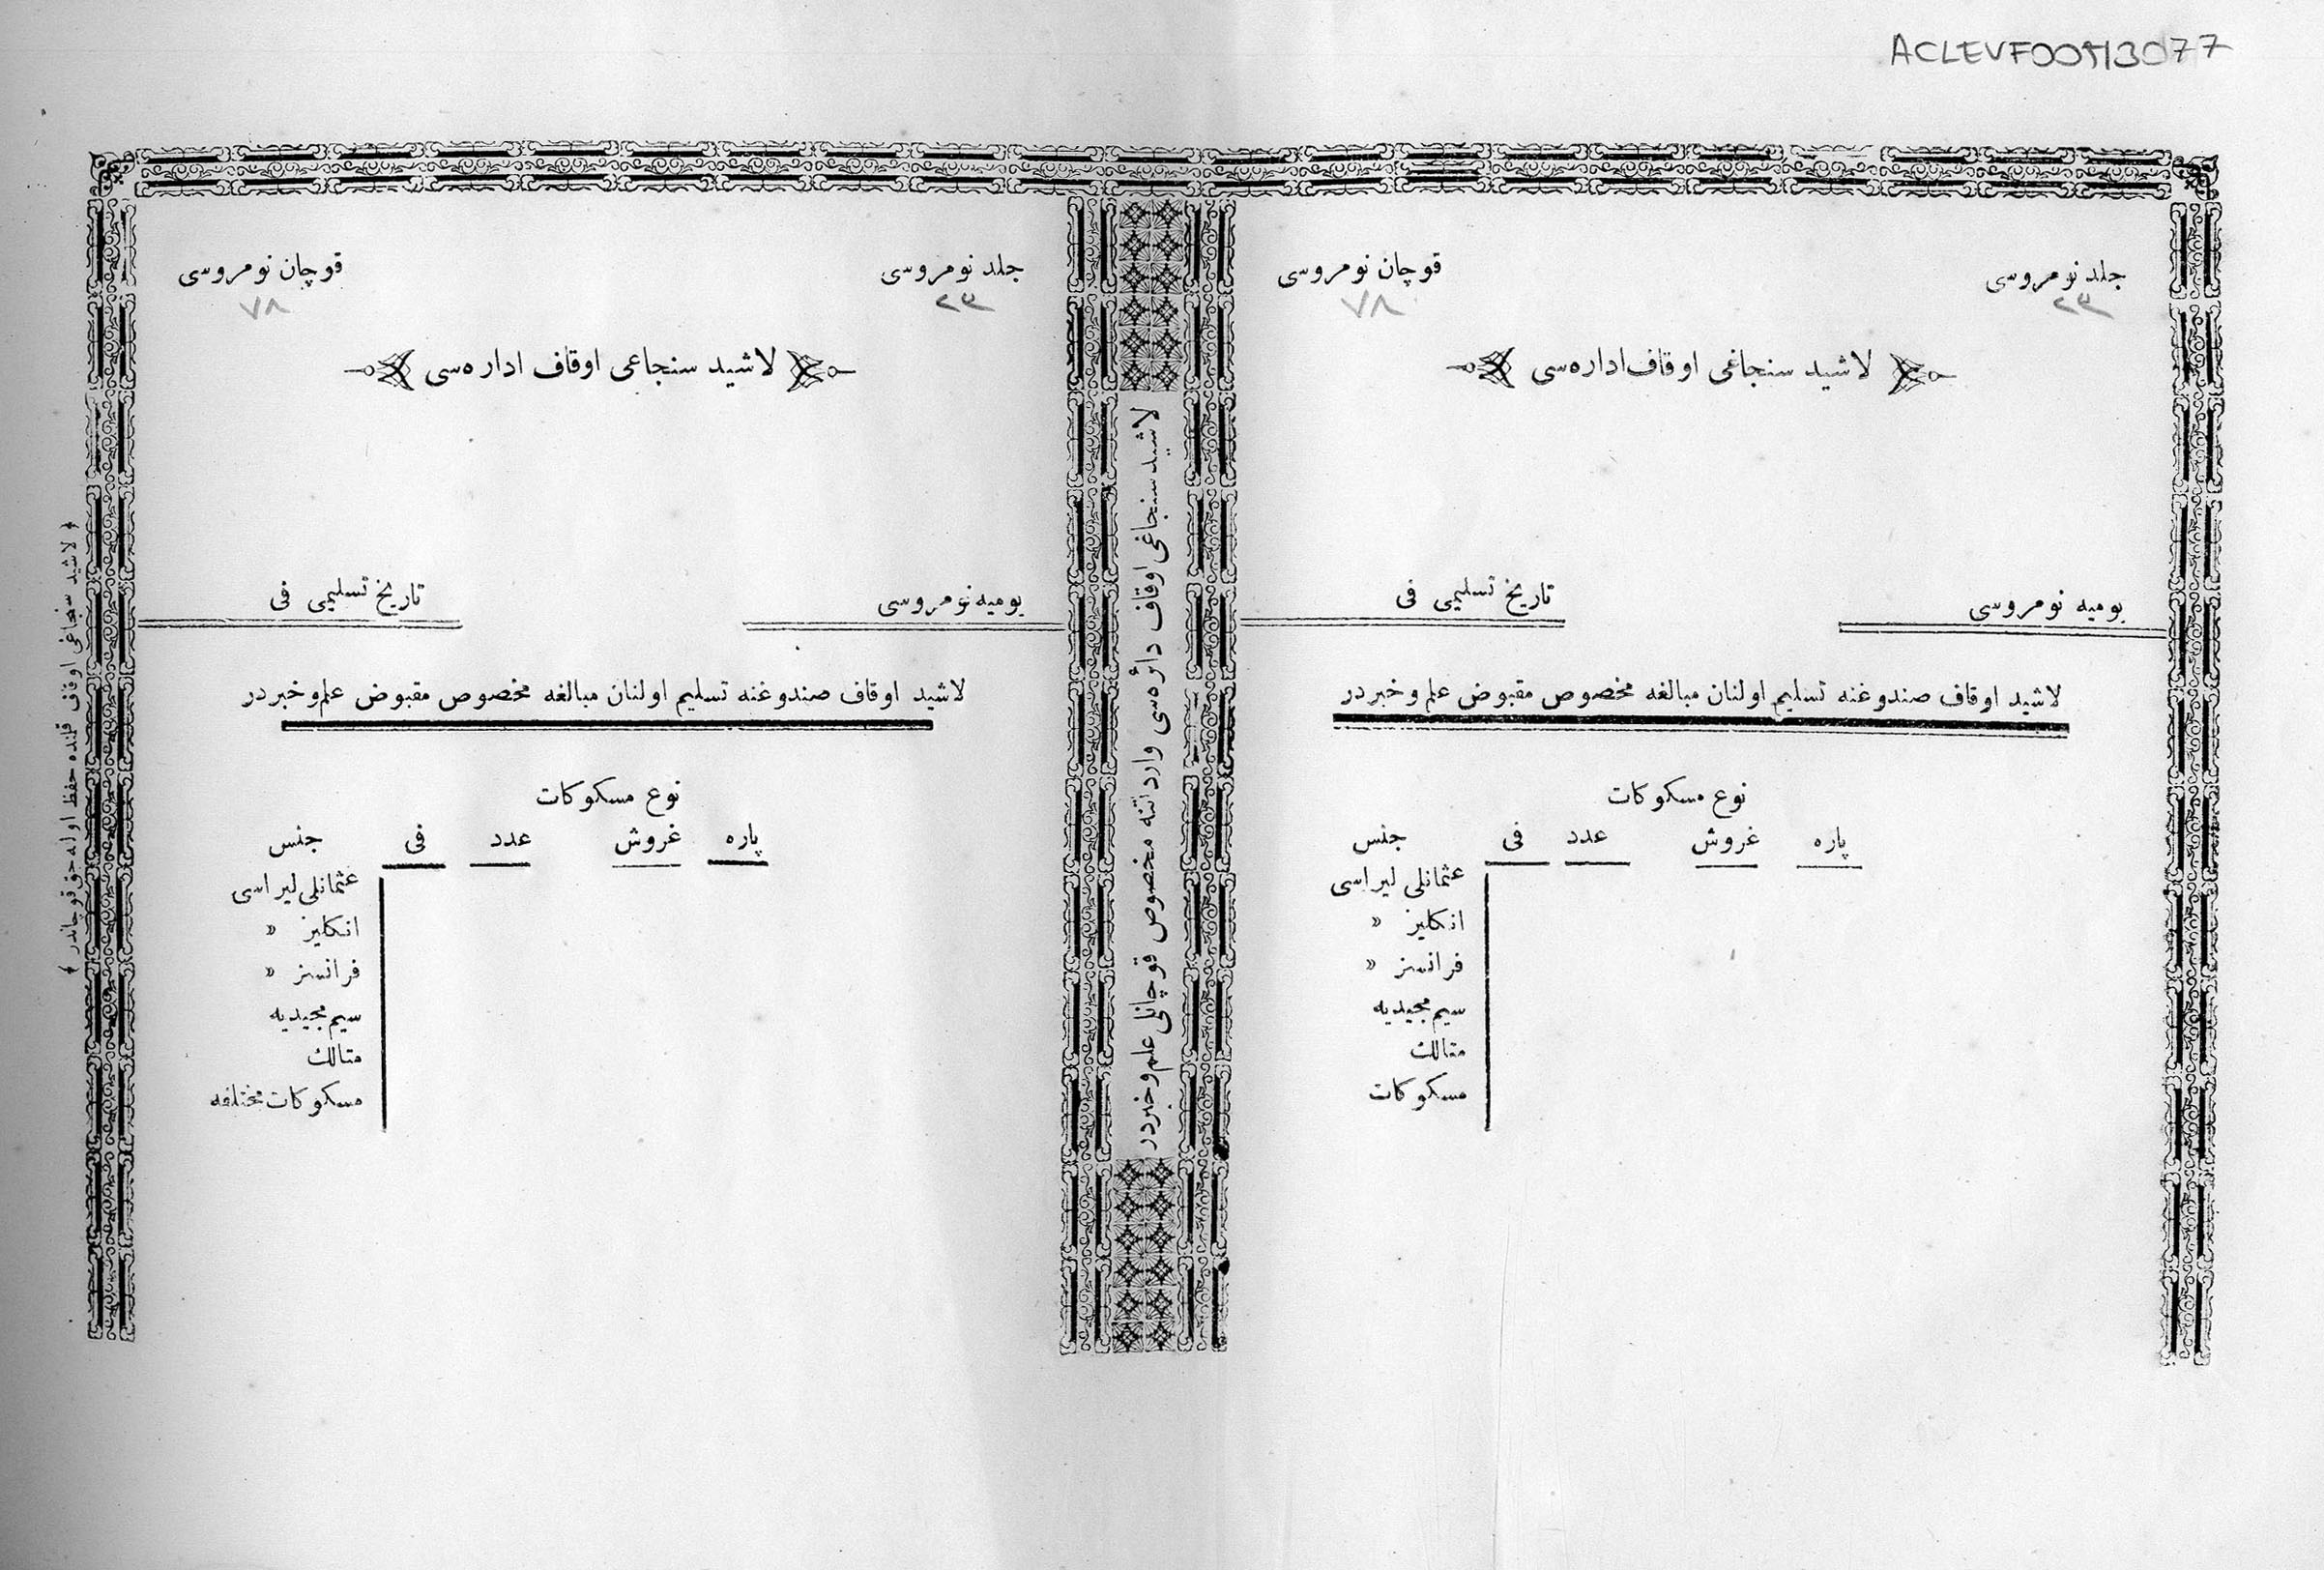 ACLEVF00513077
جلد نومروسی
٢٣
قوچان نومروسی
٧٨
لاشید سنجاغی اوقاف اداره‌سی
یومیه نومروسی
تاریخ تسلیمی فی
لاشید اوقاف صندوغنه تسلیم اولنان مبالغه مخصوص مقبوض علم وخبردر
نوع مسكوكات
پاره غروش عدد فی جنس
عثمانلی لیراسی
انكلیز »
فرانسز »
سیم مجیدیه
متالك
مسكوكات
لاشید سنجاغی اوقاف دائره‌سی وارداتنه مخصوص قوچانلی علم وخبردر
جلد نومروسی
٢٣
قوچان نومروسی
٧٨
لاشید سنجاعی اوقاف اداره‌سی
یومیه نومروسی
تاریخ تسلیمی فی
لاشید اوقاف صندوغنه تسلیم اولنان مبالغه مخصوص مقبوض علم وخبردر
نوع مسكوكات
پاره غروش عدد فی جنس
عثمانلی لیراسی
انكلیز »
فرانسز »
سیم مجیدیه
متالك
مسكوكات مختلفه
﴿ لاشید سنجاغی اوقاف قلمنده حفظ اوله‌جق قوچاندر ﴾